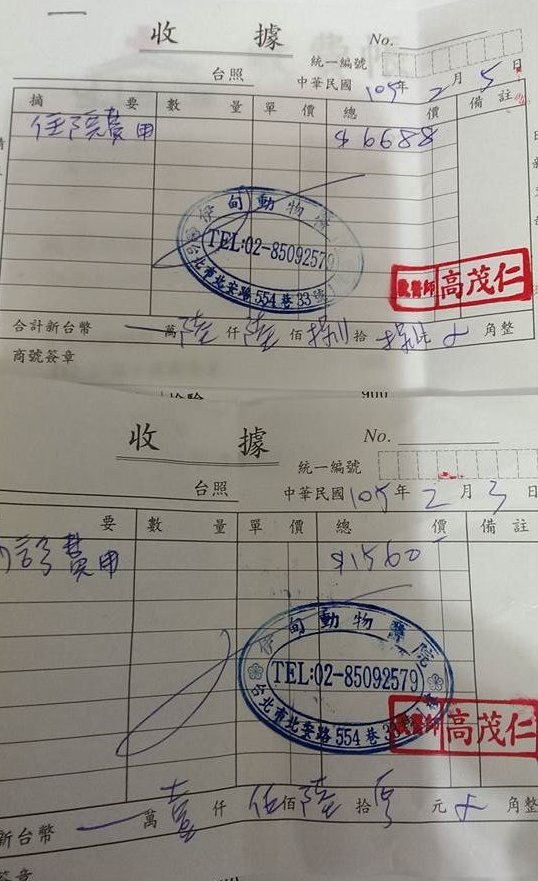 收 據
No.
統一編號
台照
中華民國 105 年 2 月 5 日
摘 要 數 量 單 價 總 價 備 註
住院費用 $6988
伊甸動物醫
TEL:02-85092579
台北市北安路554巷33號
獸醫師 高茂仁
合計新台幣 萬 陸 仟 佰 捌 拾 角整
商號簽章
900
收 據
No.
統一編號
台照
中華民國 105 年 2 月 3 日
要 數 量 單 價 總 價 備 註
診費用 $1560
伊甸動物醫院
TEL:02-85092579
台北市北安路554巷3
獸醫師 高茂仁
新台幣 萬 壹 仟 伍 佰 陸 拾 零 元 角整
簽章